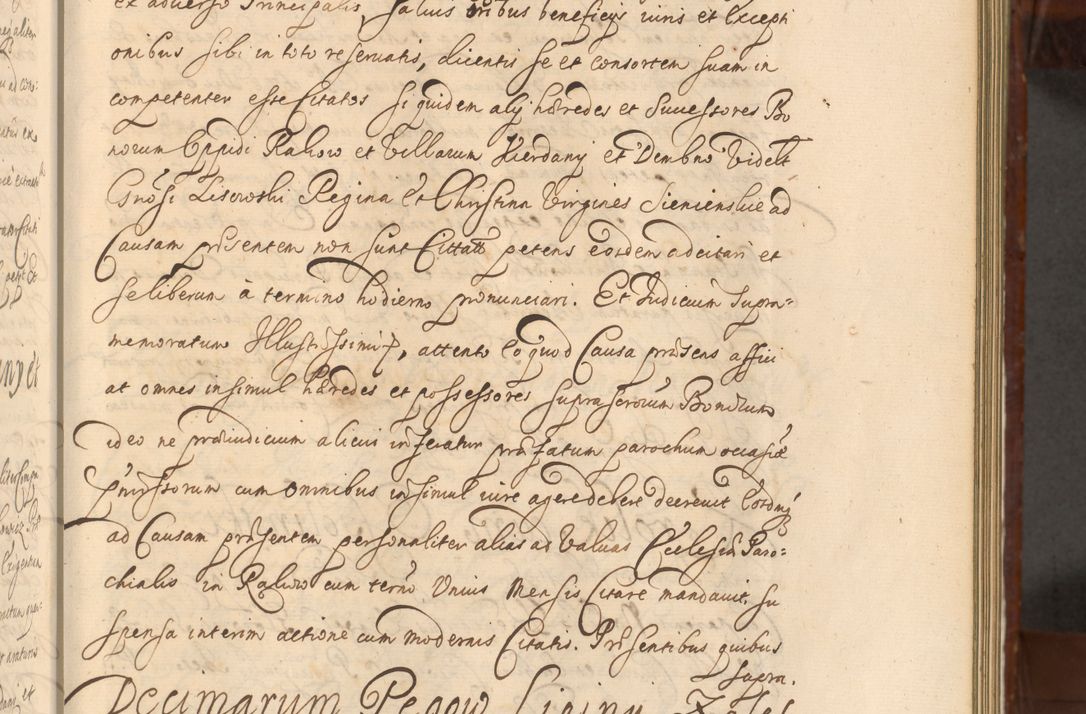 et adverso Principalis, salvis oibus beneficijs iuris et Excepti
onibus sibi in toto reservatis, dicentis se et consortem suam in
competenter esse Citatos siquidem alij hæredes et Successores Bo
norum Oppidi Rakow et Villarum Kierdanj et Dembno Videlt
Gnōsi Lisowski Regina et Christina Virgines Sienienskie ad
Causam præsentem non sunt Cittatæ petens eosdem adcitari et
se liberum à termino hodierno pronunciari. Et Judicium supra=
memoratum Illustrissimi, attento eo quod Causa præsens affici
at omnes insimul hæredes et possessores suprascrorum Bonorum
ideo ne præiudicium alicui inferatur præfatum parochum occasie
p̃missorum cum omnibus insimul iure agere debere decrevit Eosdmq́
ad Causam præsentem personaliter alias ad Valvas Ecclesiæ Paro=
chialis in Rakow cum terno Unius Mensis Citare mandavit, su
spensa interim actione cum modernis Citatis. Præsentibus quibus
supra.
Decimarum Pegow Ligin